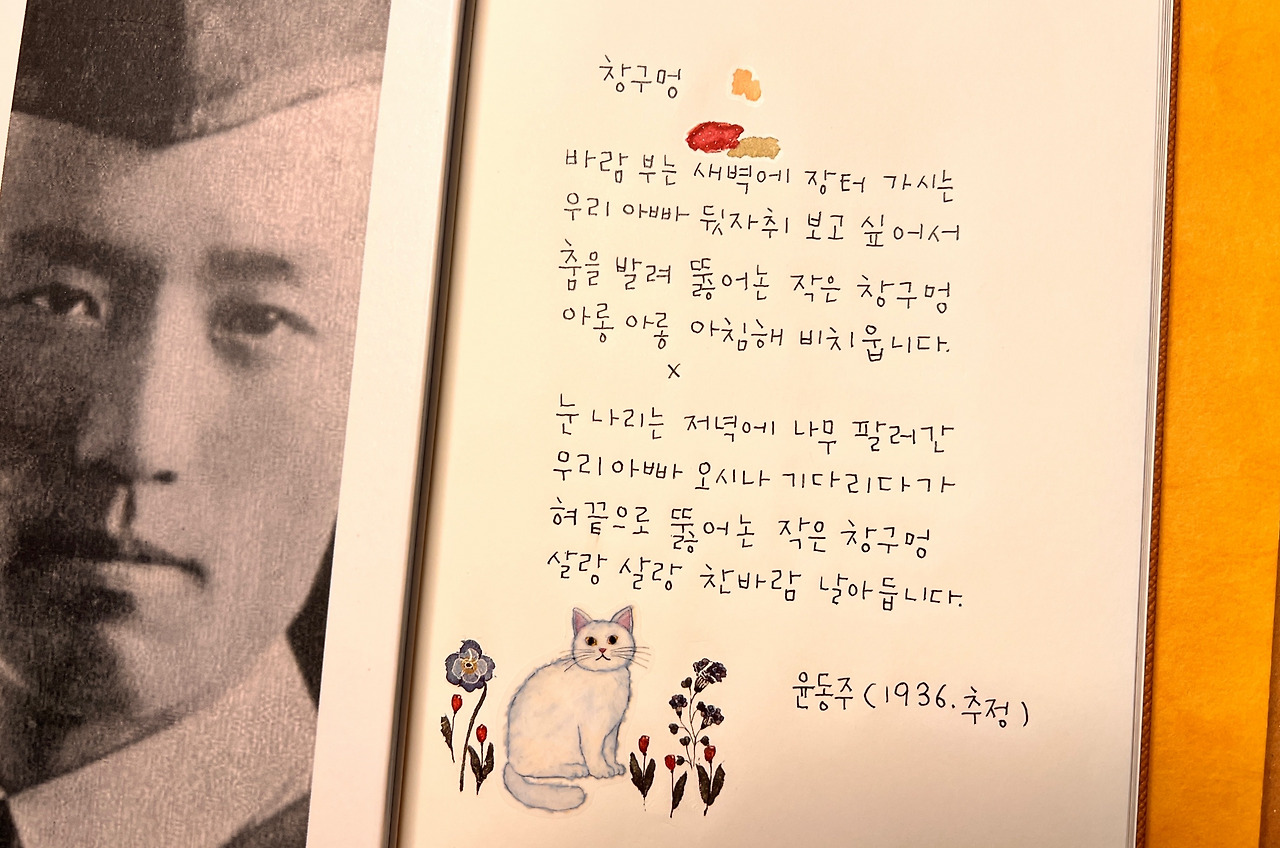 창구멍
바람 부는 새벽에 장터 가시는
우리 아빠 뒷자취 보고 싶어서
춤을 발려 뚫어논 작은 창구멍
아롱 아롱 아침해 비치웁니다.
x
눈 나리는 저녁에 나무 팔러간
우리 아빠 오시나 기다리다가
혀끝으로 뚫어논 작은 창구멍
살랑 살랑 찬바람 날아듭니다.
윤동주 (1936. 추정)